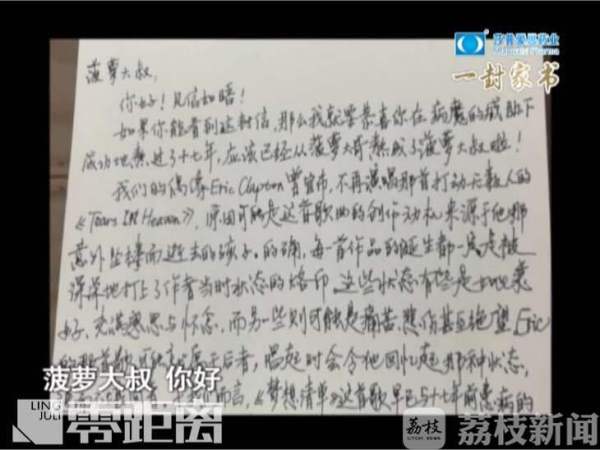 一封家书
菠萝大叔,
你好!见信如晤!
如果你能看到这封信,那么我就要恭喜你在病魔的威胁下
成功地熬过了十七年,应该已经从菠萝大哥熬成了菠萝大叔啦!
我们的偶像Eric Clapton曾宣布,不再演唱那首打动无数人的
《Tears IN Heaven》,原因可能是这首歌曲的创作动机来源于他那
意外坠楼而逝去的孩子。的确,每一首作品的诞生都一定是被
深深地打上了作者当时状态的烙印,这些状态有些是如此美
好,充满思与怀念,而另一些则可能是痛苦、悲伤甚至绝望。Eric
的那首歌可能就属于后者,唱起时会令他回忆起那种状态,
而言,《梦想清单》这首歌早已与十七年前患病的
菠萝大叔 你好
LING
JULI
零距离
荔枝
荔枝新闻